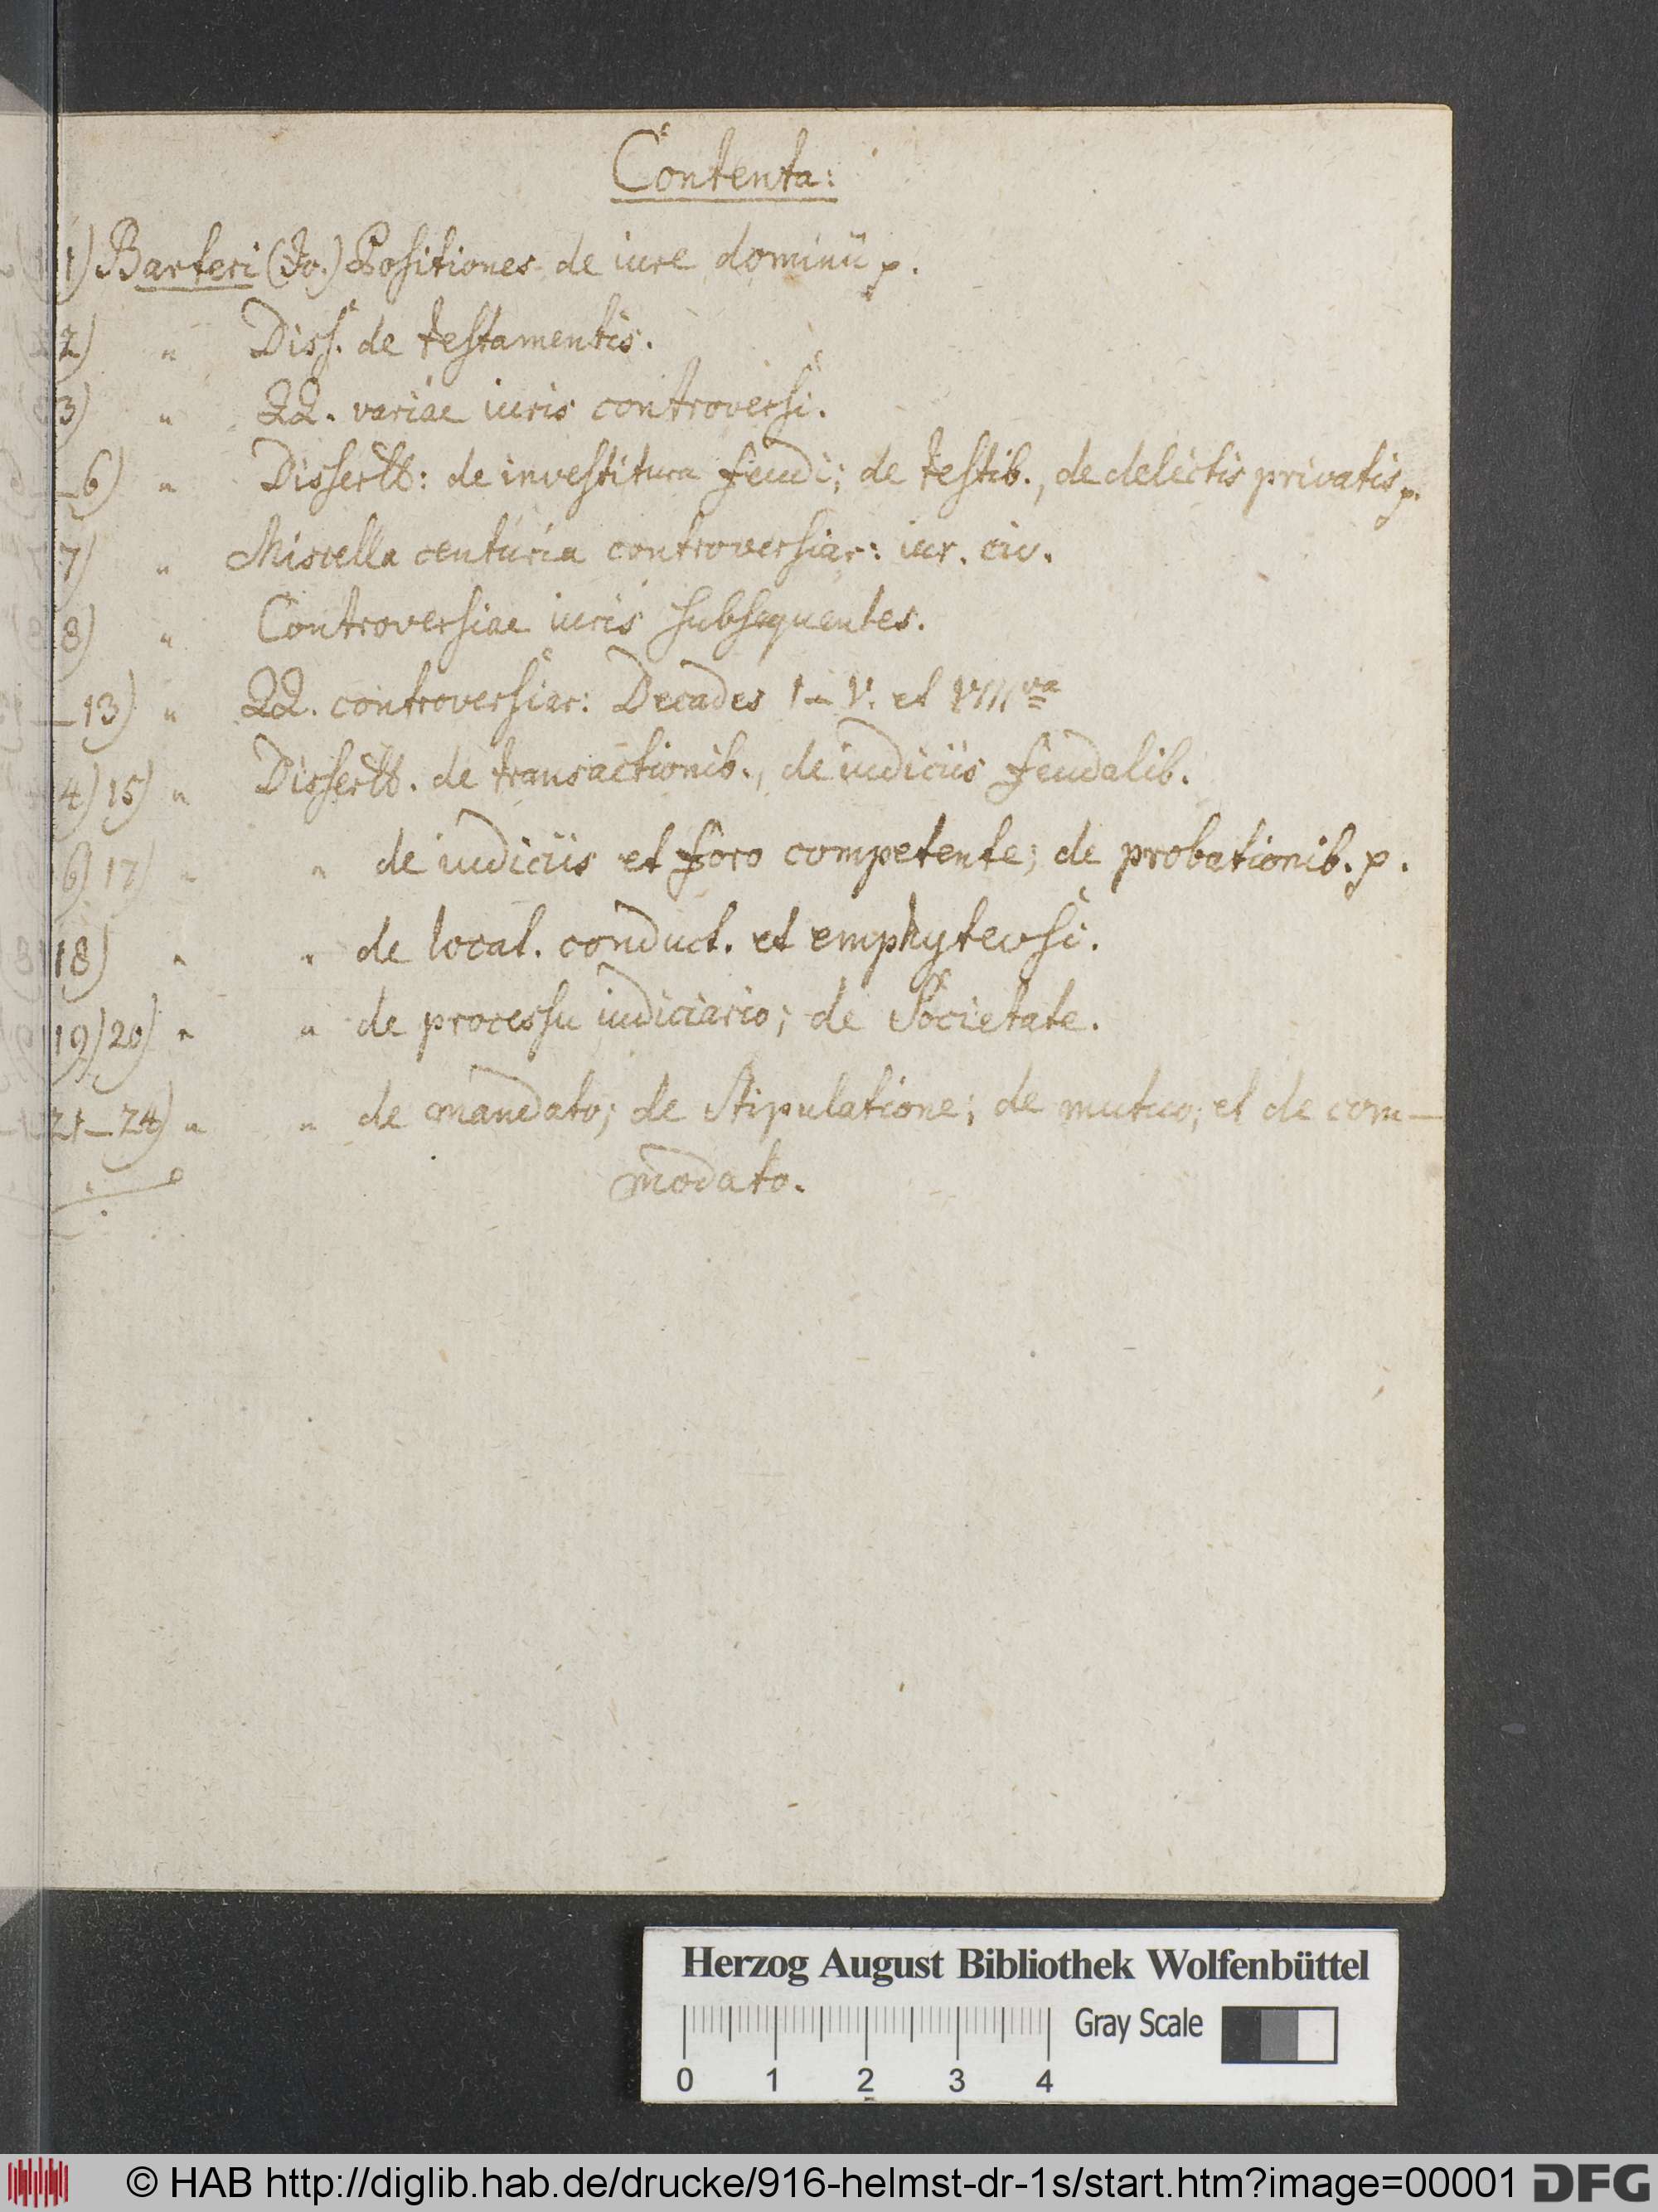 Contenta:
1) Barteri (Jo.) Positiones de iure dominii p.
2) " Diss. de testamentis.
3) " QQ. variae iuris controversi.
_6) " Dissertt: de investitura feudi; de testib., de delictis privatis p.
7) " Miscella centuria controversiar: iur. civ.
8) " Controversiae iuris subsequentes.
_13) " QQ. controversiar: Decades I–V. et VIII va
4) 15) " Dissertt. de transactionib., de iudiciis feudalib.
6) 17) " " de iudiciis et foro competente; de probationib. p.
18) " " de locat. conduct. et emphyteusi.
19) 20) " " de processu iudiciario; de Societate.
21_24) " " de mandato; de Stipulatione; de mutuo; et de com–
modato.
Herzog August Bibliothek Wolfenbüttel
Gray Scale
0 1 2 3 4
© HAB http://diglib.hab.de/drucke/916-helmst-dr-1s/start.htm?image=00001 DFG